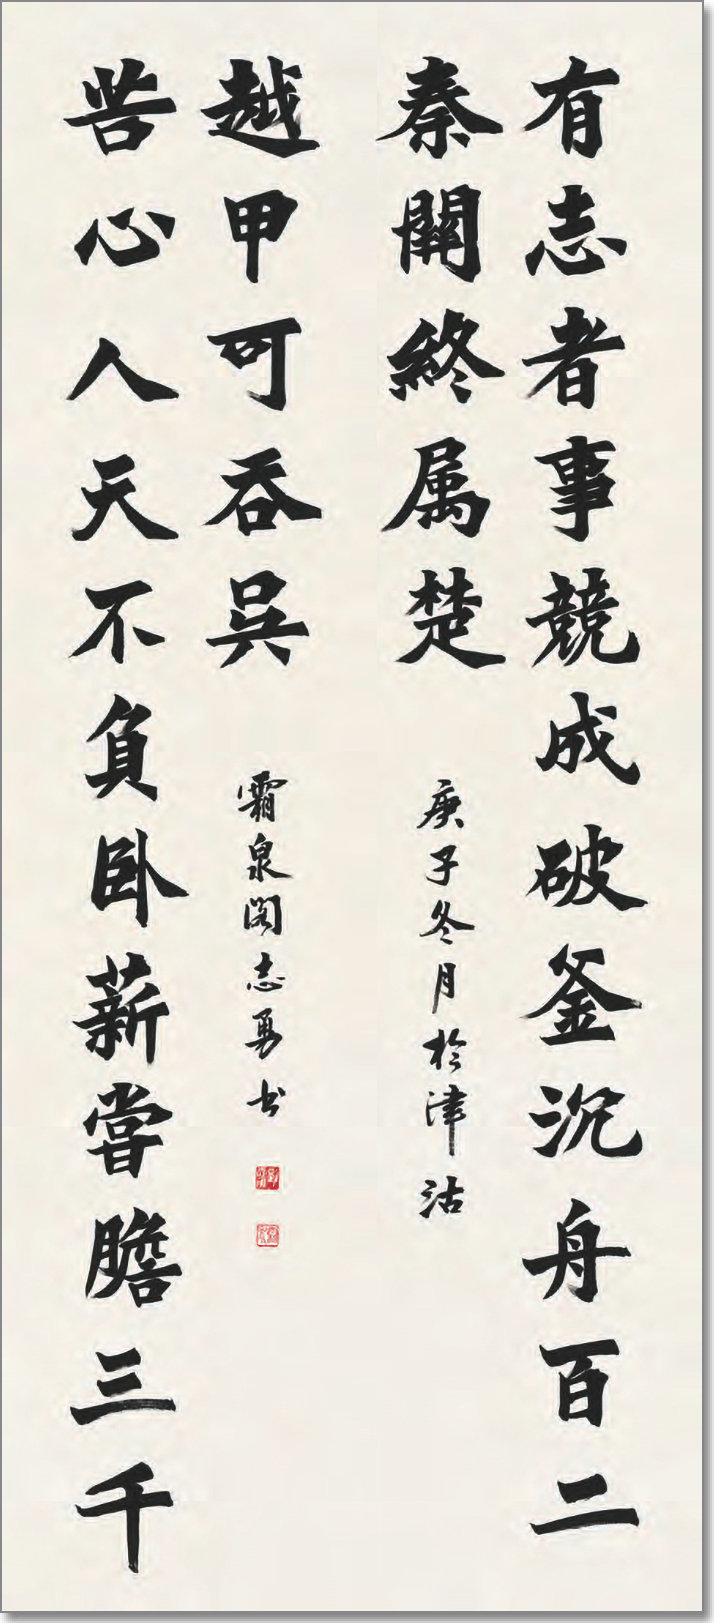 有志者事競成破釜沉舟百二
秦關終属楚
庚子冬月於津沽
苦心人天不負卧薪嘗膽三千
越甲可吞吳
霜泉閣志勇书